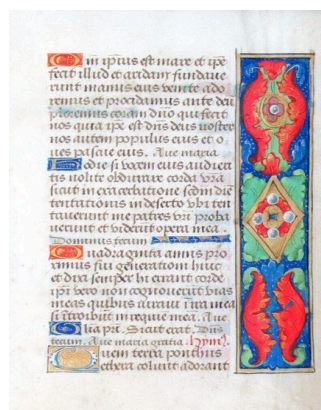 Qm ipius est mare et ipe
fecit illud et aridam fundaue
runt manus eius venite ado
remus et procidamus ante deũ
ploremus coram dno qui fecit
nos quia ipe est dns deus noster
nos autem populus eius et o
ues pascue eius. Aue maria
Hodie si vocem eius audieri
tis nolite obdurare corda vra
sicut in exacerbatione scdm diem
tentationis in deserto vbi ten
tauerunt me patres vri proba
uerunt et viderunt opera mea.
Dominus tecum
Quadraginta annis pro
ximus fui generationi huic
et dixi semper hi errant corde
ipi vero non cognouerut vias
meas quibus iuraui i ira mea
si itroibũt in requie mea. Aue
Glia pri. Sicut erat. Dns
tecum. Aue maria gratia. hym9.
Quem terra ponthus
ethera colunt adorant